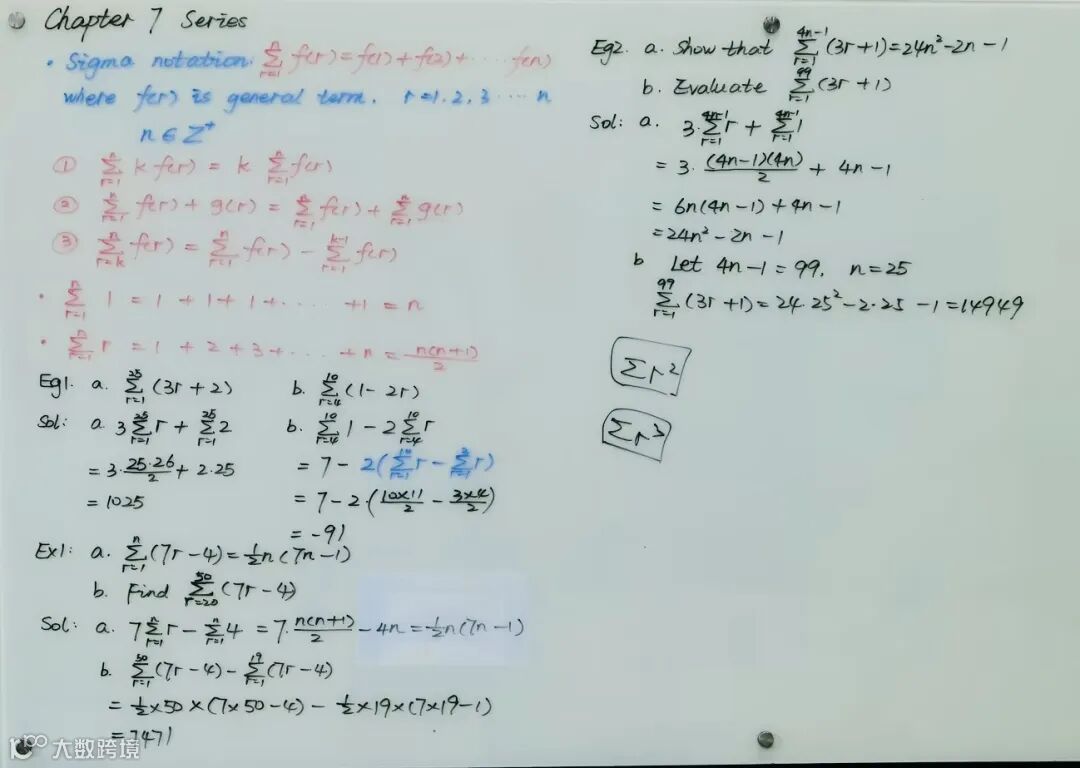 Chapter 7 Series
· Sigma notation: \sum_{r=1}^{n} f(r) = f(1) + f(2) + ····· f(n)
where f(r) is general term. r = 1, 2, 3 ···· n
n ∈ Z⁺
① \sum_{r=1}^{n} k f(r) = k \sum_{r=1}^{n} f(r)
② \sum_{r=1}^{n} f(r) + g(r) = \sum_{r=1}^{n} f(r) + \sum_{r=1}^{n} g(r)
③ \sum_{r=k}^{n} f(r) = \sum_{r=1}^{n} f(r) - \sum_{r=1}^{k-1} f(r)
· \sum_{r=1}^{n} 1 = 1 + 1 + 1 + ····· + 1 = n
· \sum_{r=1}^{n} r = 1 + 2 + 3 + ····· + n = \frac{n(n+1)}{2}
Eg1. a. \sum_{r=1}^{25} (3r + 2) b. \sum_{r=4}^{10} (1 - 2r)
Sol: a. 3\sum_{r=1}^{25} r + \sum_{r=1}^{25} 2 b. \sum_{r=4}^{10} 1 - 2\sum_{r=4}^{10} r
= 3·\frac{25·26}{2} + 2·25 = 7 - 2(\sum_{r=1}^{10} r - \sum_{r=1}^{3} r)
= 1025 = 7 - 2·(\frac{10×11}{2} - \frac{3×4}{2})
= -91
Ex1: a. \sum_{r=1}^{n} (7r - 4) = ½n(7n - 1)
b. Find \sum_{r=20}^{50} (7r - 4)
Sol: a. 7\sum_{r=1}^{n} r - \sum_{r=1}^{n} 4 = 7·\frac{n(n+1)}{2} - 4n = ½n(7n - 1)
b. \sum_{r=1}^{50} (7r - 4) - \sum_{r=1}^{19} (7r - 4)
= ½×50×(7×50-4) - ½×19×(7×19-1)
= 7471
Eg2. a. Show that \sum_{r=1}^{4n-1} (3r + 1) = 24n² - 2n - 1
b. Evaluate \sum_{r=1}^{99} (3r + 1)
Sol: a. 3·\sum_{r=1}^{4n-1} r + \sum_{r=1}^{4n-1} 1
= 3·\frac{(4n-1)(4n)}{2} + 4n - 1
= 6n(4n-1) + 4n - 1
= 24n² - 2n - 1
b Let 4n - 1 = 99, n = 25
\sum_{r=1}^{99} (3r + 1) = 24·25² - 2·25 - 1 = 14949
Σr²
Σr³
大数跨境